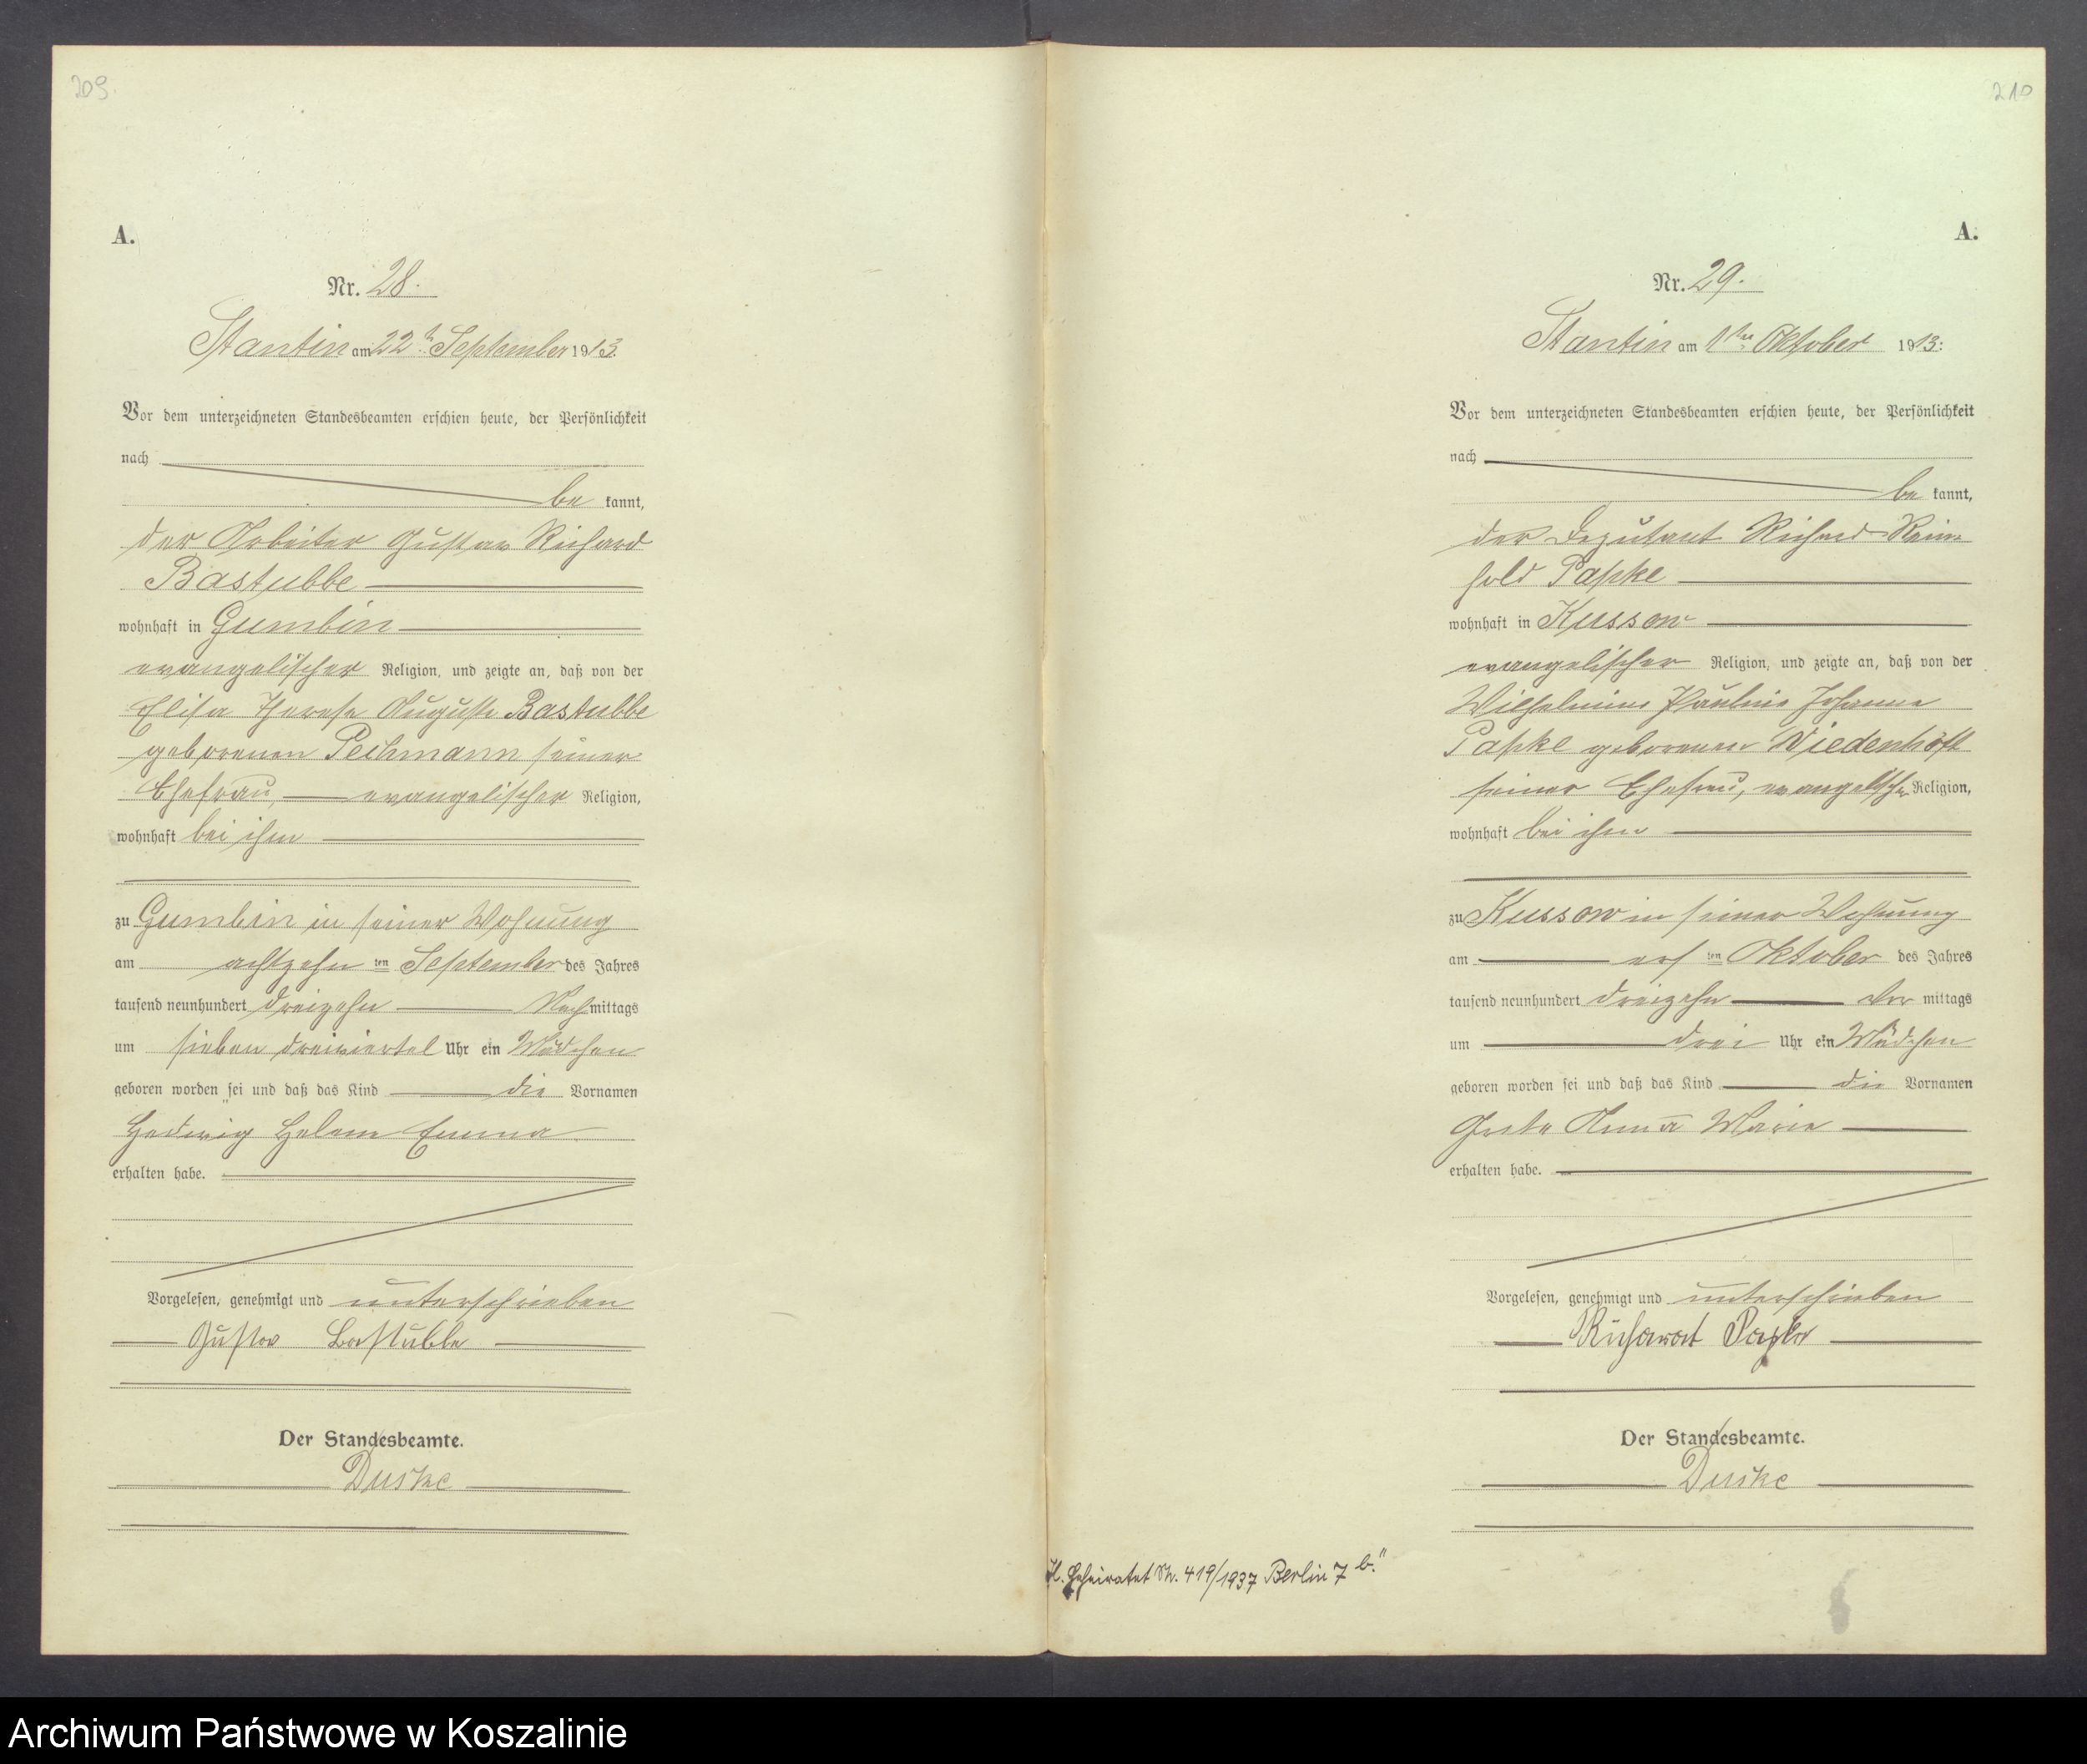 209.
A.
Nr. 28.
Stantin am 22ten September 1913.
Vor dem unterzeichneten Standesbeamten erschien heute, der Persönlichkeit
nach
be kannt,
der Arbeiter Gustav Richard
Bastubbe
wohnhaft in Gumbin
evangelischer Religion, und zeigte an, daß von der
Elisa Therese Auguste Bastubbe
geborenen Pechmann seiner
Ehefrau, evangelischer Religion,
wohnhaft bei ihm
zu Gumbin in seiner Wohnung
am achtzehn ten September des Jahres
tausend neunhundert dreizehn Nach mittags
um sieben dreiviertel Uhr ein Mädchen
geboren worden sei und daß das Kind die Vornamen
Hedwig Helene Emma
erhalten habe.
Vorgelesen, genehmigt und unterschrieben
Gustav Bastubbe
Der Standesbeamte.
Duske
210
A.
Nr. 29.
Stantin am 1ten Oktober 1913.
Vor dem unterzeichneten Standesbeamten erschien heute, der Persönlichkeit
nach
be kannt,
der Deputant Richard Rein-
hold Papke
wohnhaft in Kussow
evangelischer Religion, und zeigte an, daß von der
Wilhelmine Pauline Johanne
Papke geborenen Wiedenhöft
seiner Ehefrau, evangelischer Religion,
wohnhaft bei ihm
zu Kussow in seiner Wohnung
am ers ten Oktober des Jahres
tausend neunhundert dreizehn Vor mittags
um drei Uhr ein Mädchen
geboren worden sei und daß das Kind die Vornamen
Grete Anna Marie
erhalten habe.
Vorgelesen, genehmigt und unterschrieben
Richard Papke
Der Standesbeamte.
Duske
Geheiratet Nr. 419/1937 Berlin 7 b."
Archiwum Państwowe w Koszalinie